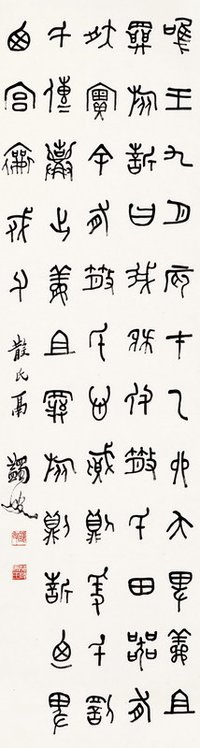 唯王九月辰才乙卯夨卑義且
旅誓曰我既付散氏田器有
爽實余有散氏心賊則爰千罰
千傳棄之義且旅則誓廼卑
西宮襄父
散氏鬲 蠲叟